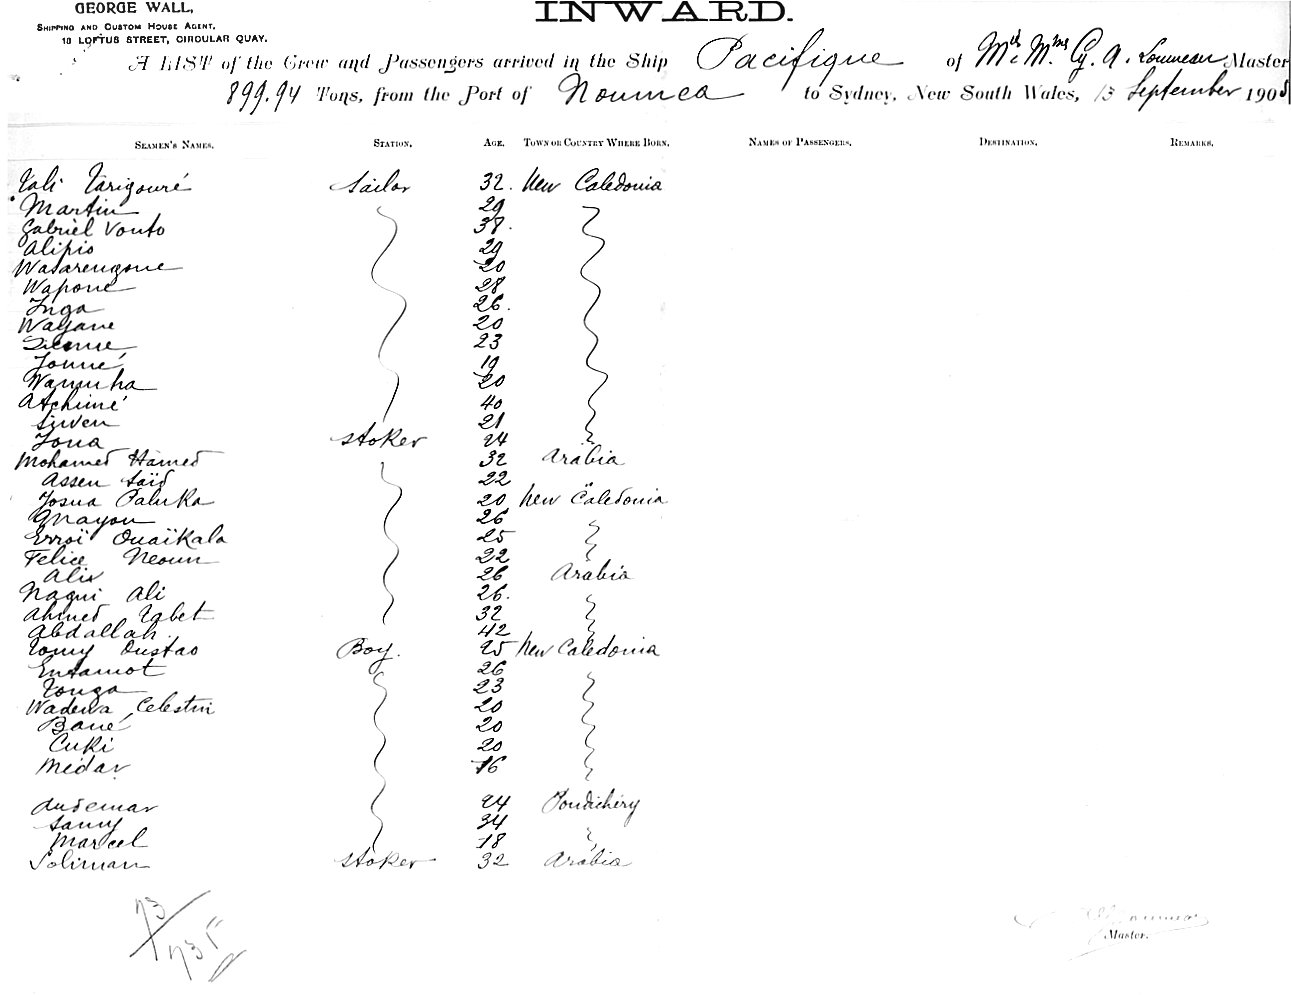 GEORGE WALL,
SHIPPING AND CUSTOM HOUSE AGENT,
18 LOFTUS STREET, CIRCULAR QUAY.
INWARD.
A LIST of the Crew and Passengers arrived in the Ship Pacifique of Master
899.94 Tons, from the Port of Noumea to Sydney, New South Wales, 13 September 1905
SEAMEN'S NAMES. STATION. AGE. TOWN OR COUNTRY WHERE BORN. NAMES OF PASSENGERS. DESTINATION. REMARKS.
Tarigouré Sailor 32. New Caledonia
Martin 29
Gabriel Vouto 38.
Alipio 29
Wasarengone 20
Wapone 28
Inga 26.
Wayane 20
23
19
20
Atchimé 40
Siwen 21
Stoker 24
Mohamed Hamed 32 Arabia
Assen Saïd 22 "
Josua Paluka 20 New Caledonia
Gnayou 26
Erroï Ouaïkala 25
Felice Neoun 22
26 Arabia
Nagui Ali 26.
Ahmed Tabet 32
Abdallah. 42
Tomy Oustao Boy. 25 New Caledonia
Entamot 26
Tonga 23
Celestin 20
Boué 20
Cuki 20
Médar 16
Audemar 24 Pondichéry
Samy 34
Marcel 18
Soliman Stoker 32 Arabia
73
735
Master.